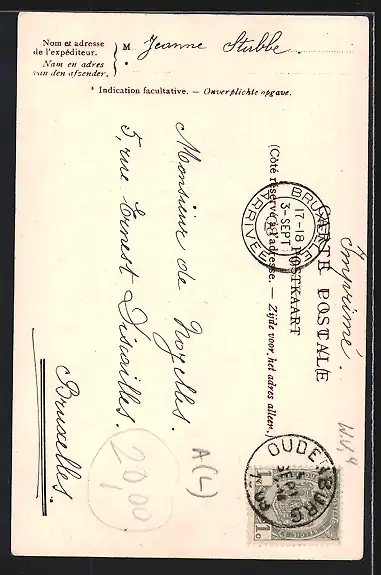 Nom et adresse
de l'expéditeur.
Nam en adres
van den afzender.
M Jeanne Stubbe
*
* Indication facultative. — Onverplichte opgave.
Imprimé.
CARTE POSTALE
POSTKAART
(Côté réservé à l'adresse. — Zijde voor het adres alleen.)
BRUXELLES
17-18
3-SEPT
ARRIVÉE
OUDENBURG
1c 1c
Monsieur de Noyelles.
5, rue Ernest Discailles.
Bruxelles.
A(L)
20,00